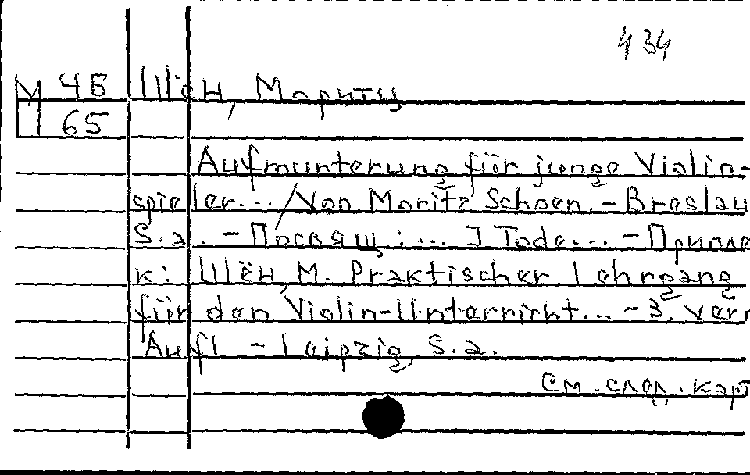 434
М 4Б Шён, Мориту
65
Aufmunterung für junge Violin-
spieler... / Von Moritz Schoen. - Breslau
S.a. - Посвящ: ... J Tode... - Припле
к: Шён, М. Praktischer Lehrgang
für den Violin-Unterricht... - 3. verr
Aufl. - Leipzig, S.a.
См. след. карт